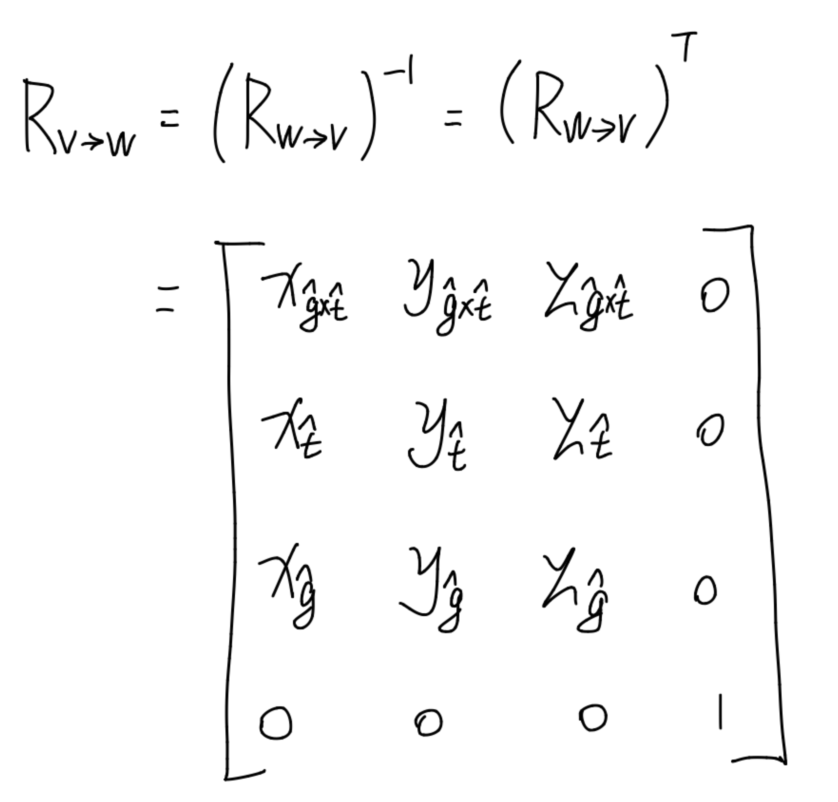 R_{V→W} = (R_{W→V})^{-1} = (R_{W→V})^T
= [ x_{ĝ×t̂} y_{ĝ×t̂} z_{ĝ×t̂} 0
x_{t̂} y_{t̂} z_{t̂} 0
x_{ĝ} y_{ĝ} z_{ĝ} 0
0 0 0 1 ]